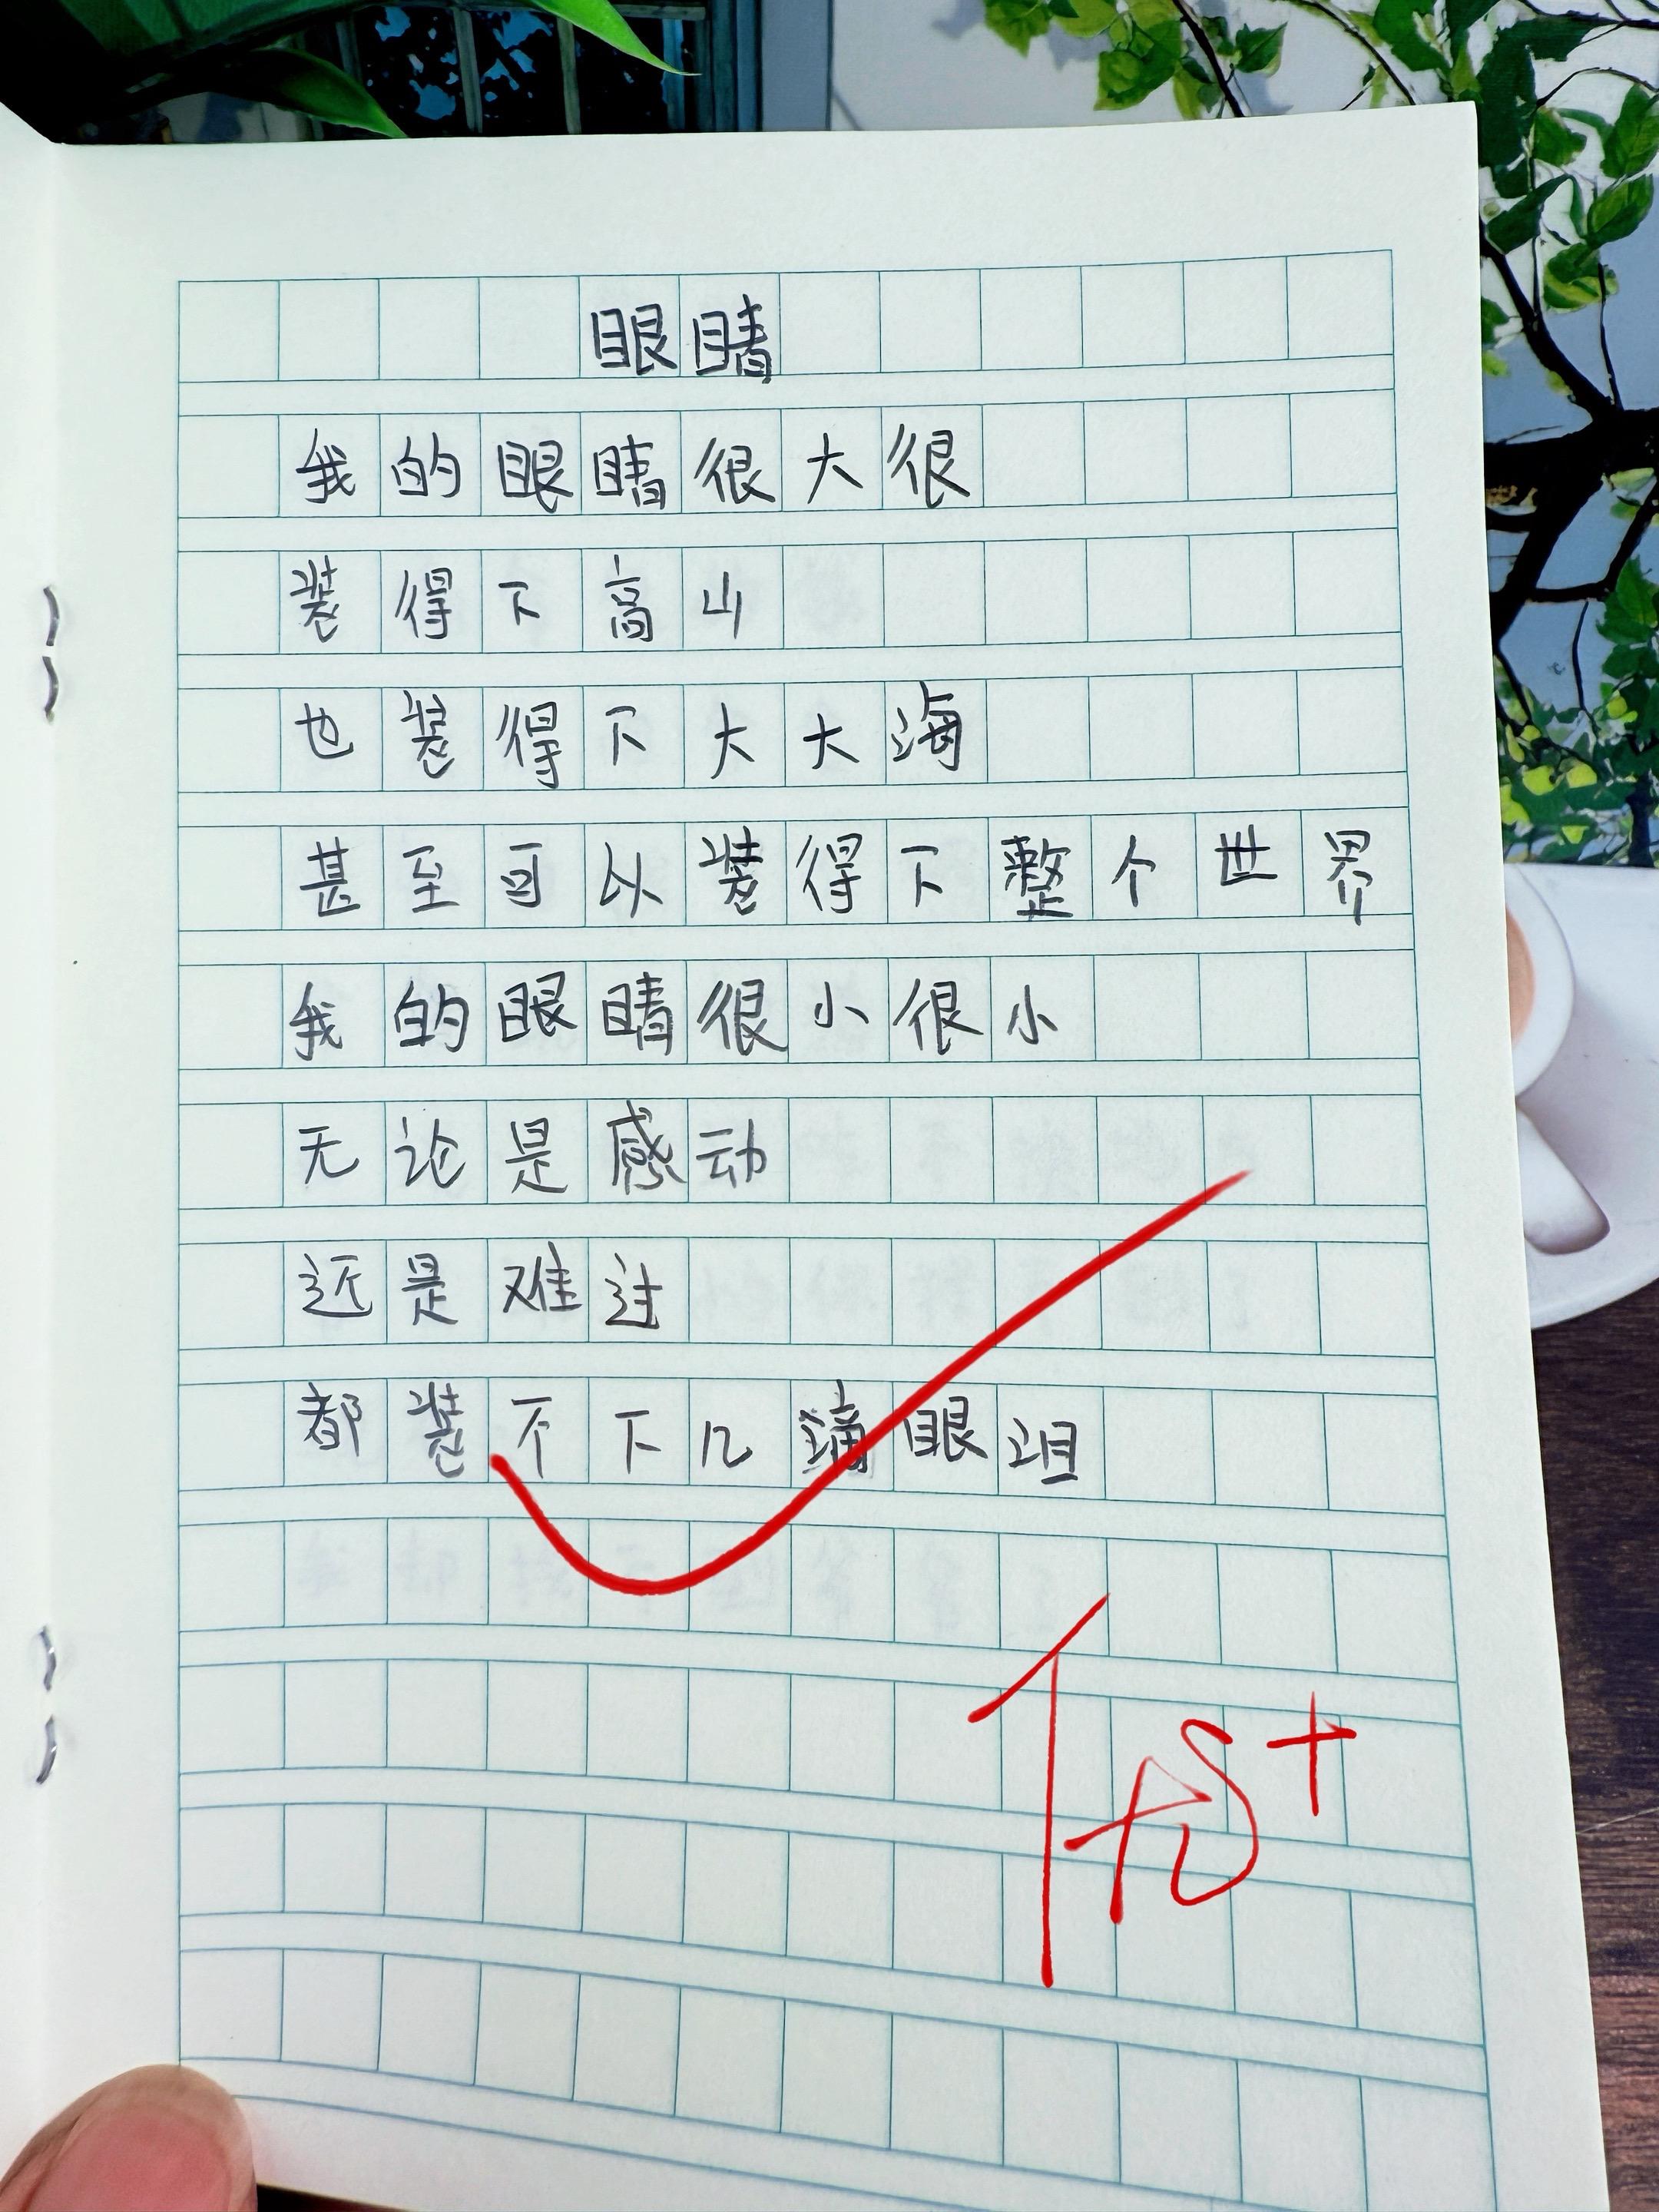 眼睛
我的眼睛很大很
装得下高山
也装得下大大海
甚至可以装得下整个世界
我的眼睛很小很小
无论是感动
还是难过
都装不下几滴眼泪
优+